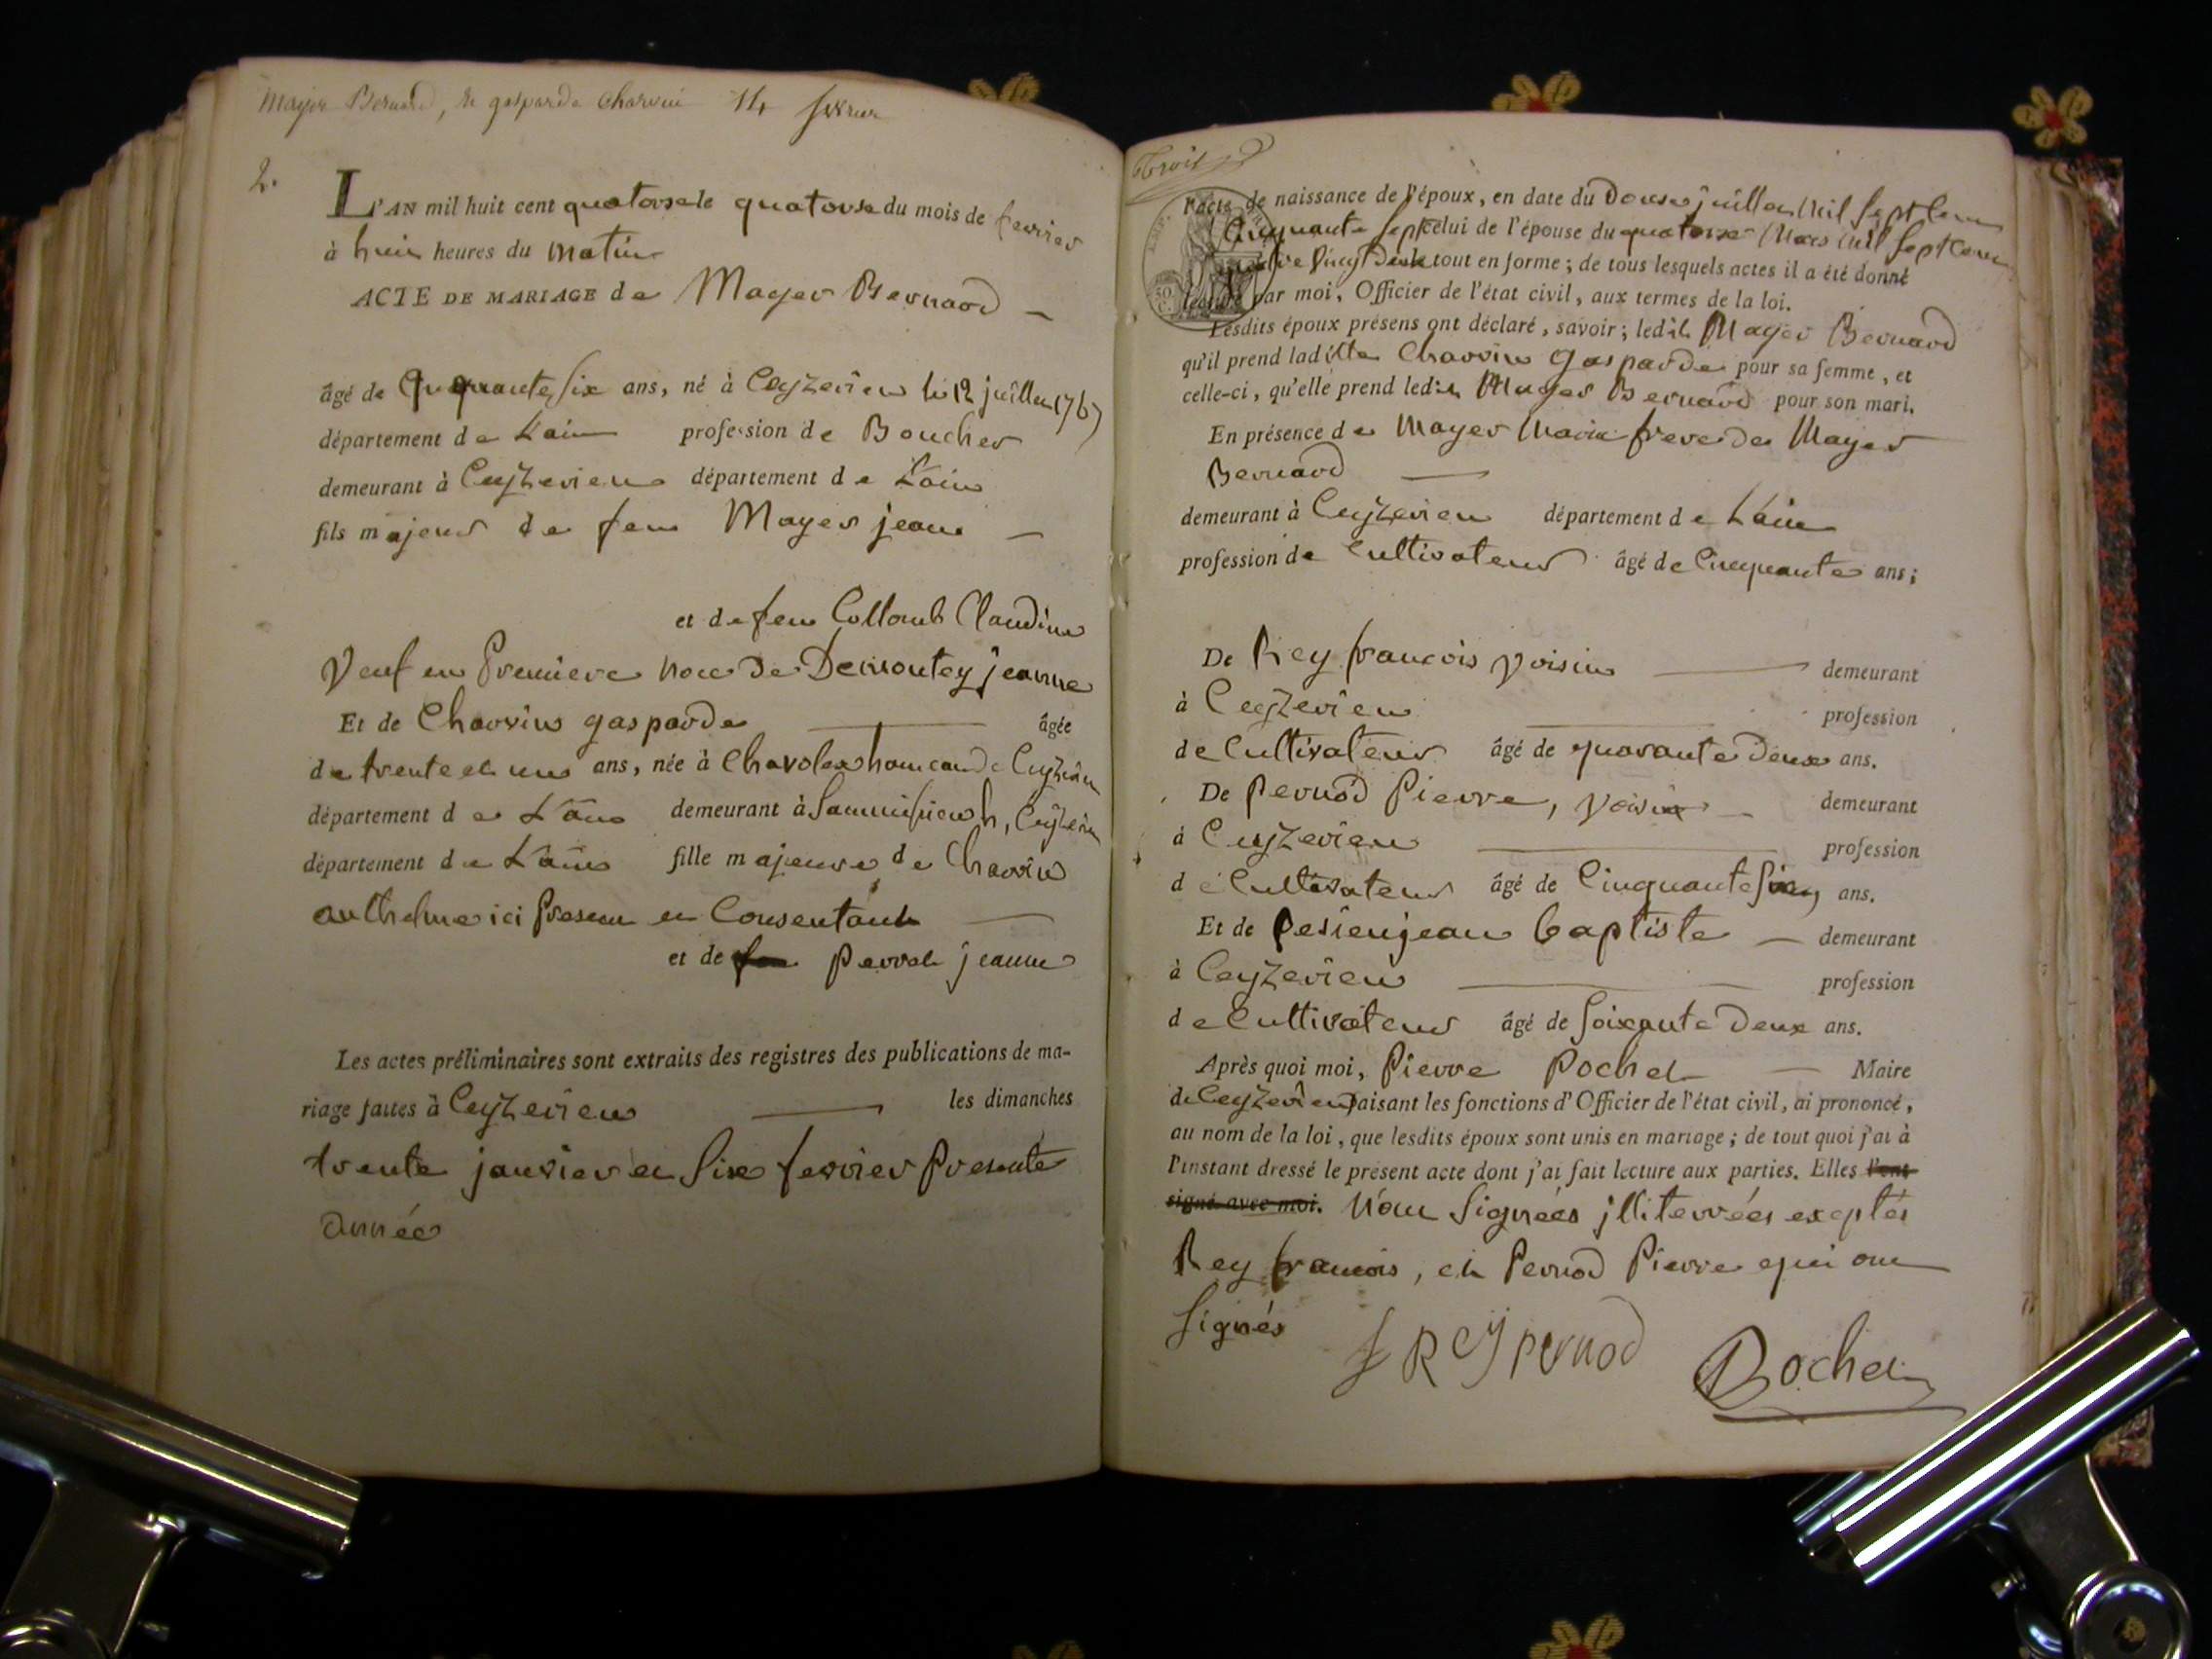 Mayer Bernard, et gasparde Charvin 14 fevrier
2.
L'AN mil huit cent quatorze le quatorze du mois de fevrier
à huit heures du matin
ACTE DE MARIAGE de Mayer Bernard
âgé de Cinquante six ans, né à Ceyzerieu le 12 juillet 1757
département de Lain profession de Boucher
demeurant à Ceyzerieu département de Lain
fils majeur de feu Mayer jean
et de feu Collomb Claudine
Veuf en Premiere noce de Demontey jeanne
Et de Charvin gasparde âgée
de trente et un ans, née à Chavoley hameau de Ceyzerieu
département de Lain demeurant à Ceyzerieu
département de Lain fille majeure de Charvin
anthelme ici Present et Consentant
et de feu Perret jeanne
Les actes préliminaires sont extraits des registres des publications de ma-
riage faites à Ceyzerieu les dimanches
trente janvier et Six fevrier Presente
année
Trois
l'acte de naissance de l'époux, en date du Douze juillet Mil Sept Cent
Cinquante Sept celui de l'épouse du quatorze Mars Mil Sept Cent
quatre Vingt Deux le tout en forme ; de tous lesquels actes il a été donné
lecture par moi, Officier de l'état civil, aux termes de la loi.
Lesdits époux présens ont déclaré, savoir ; ledit Mayer Bernard
qu'il prend laditte Charvin gasparde pour sa femme, et
celle-ci, qu'elle prend ledit Mayer Bernard pour son mari.
En présence de Mayer Marin frere de Mayer
Bernard
demeurant à Ceyzerieu département de Lain
profession de Cultivateur âgé de Cinquante ans ;
De Rey francois voisin demeurant
à Ceyzerieu profession
de Cultivateur âgé de quarante Deux ans.
De Pernod Pierre, voisin demeurant
à Ceyzerieu profession
de Cultivateur âgé de Cinquante ans.
Et de jean baptiste demeurant
à Ceyzerieu profession
de Cultivateur âgé de Soixante Deux ans.
Après quoi moi, Pierre Pochet Maire
de Ceyzerieu faisant les fonctions d'Officier de l'état civil, ai prononcé,
au nom de la loi, que lesdits époux sont unis en mariage ; de tout quoi j'ai à
l'instant dressé le présent acte dont j'ai fait lecture aux parties. Elles l'ont
signé avec moi. Nont Signées jlliterrées exeptés
Rey francois, et Pernod Pierre qui ont
Signés
f Rey pernod Pochet